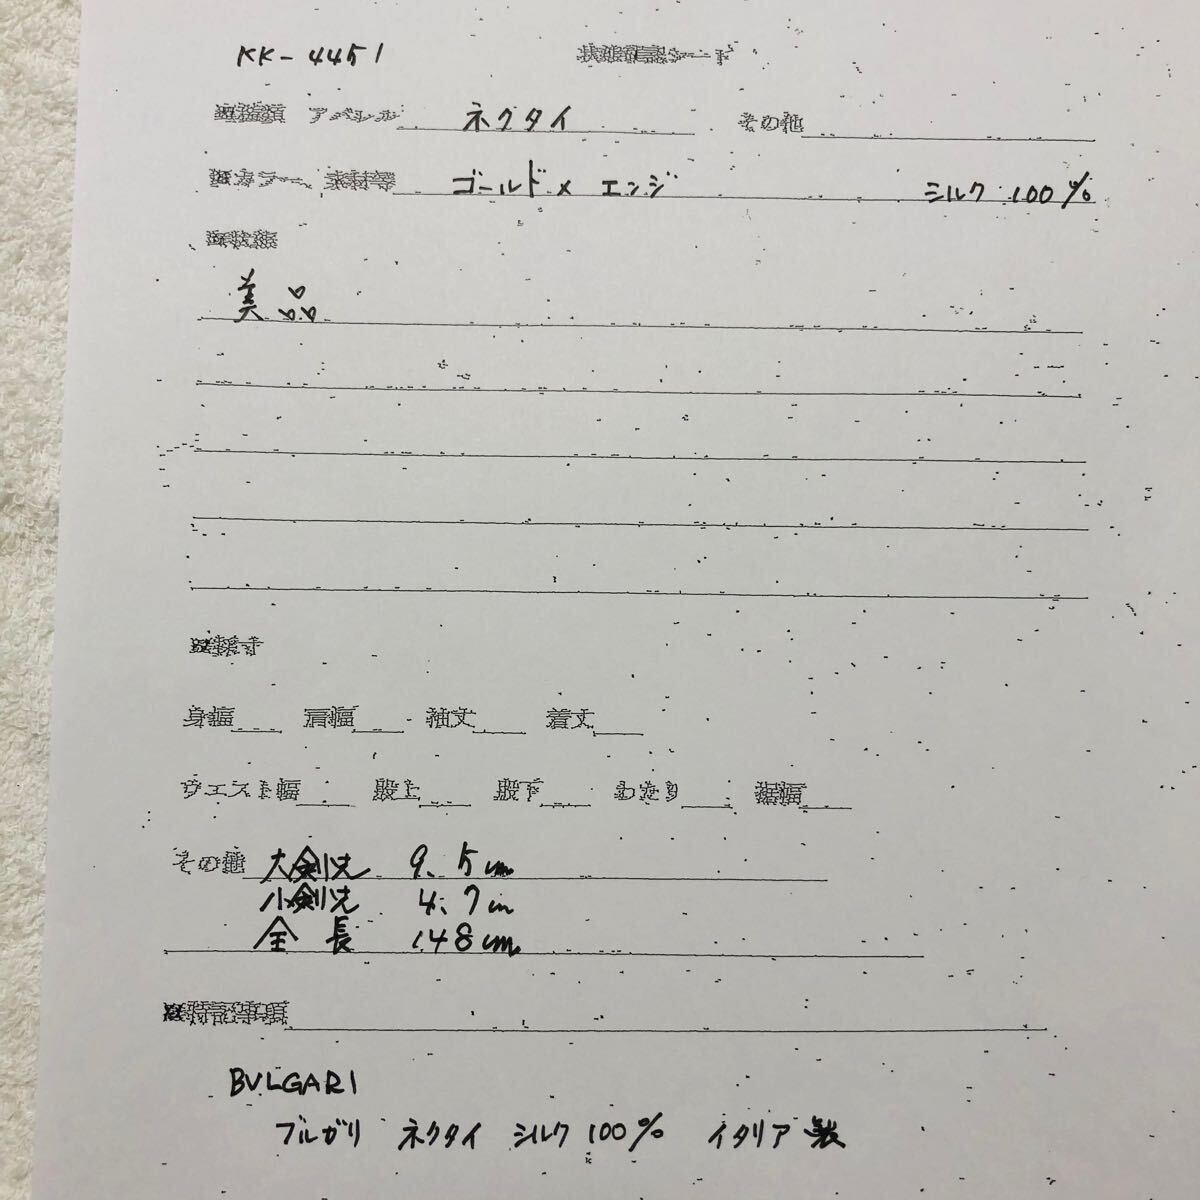 KK-4451 状態確認シート
アパレル ネクタイ その他
カラー、素材等 ゴールド× エンジ シルク 100%
状態
美品
採寸
身幅 肩幅 袖丈 着丈
ウエスト幅 股上 股下 わたり 裾幅
その他 大剣先 9.5cm
小剣先 4.7cm
全長 148cm
特記事項
BVLGARI
ブルガリ ネクタイ シルク 100% イタリア製